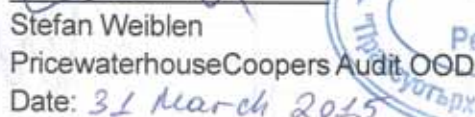 Stefan Weiblen
PricewaterhouseCoopers Audit OOD
Date: 31 March 2015